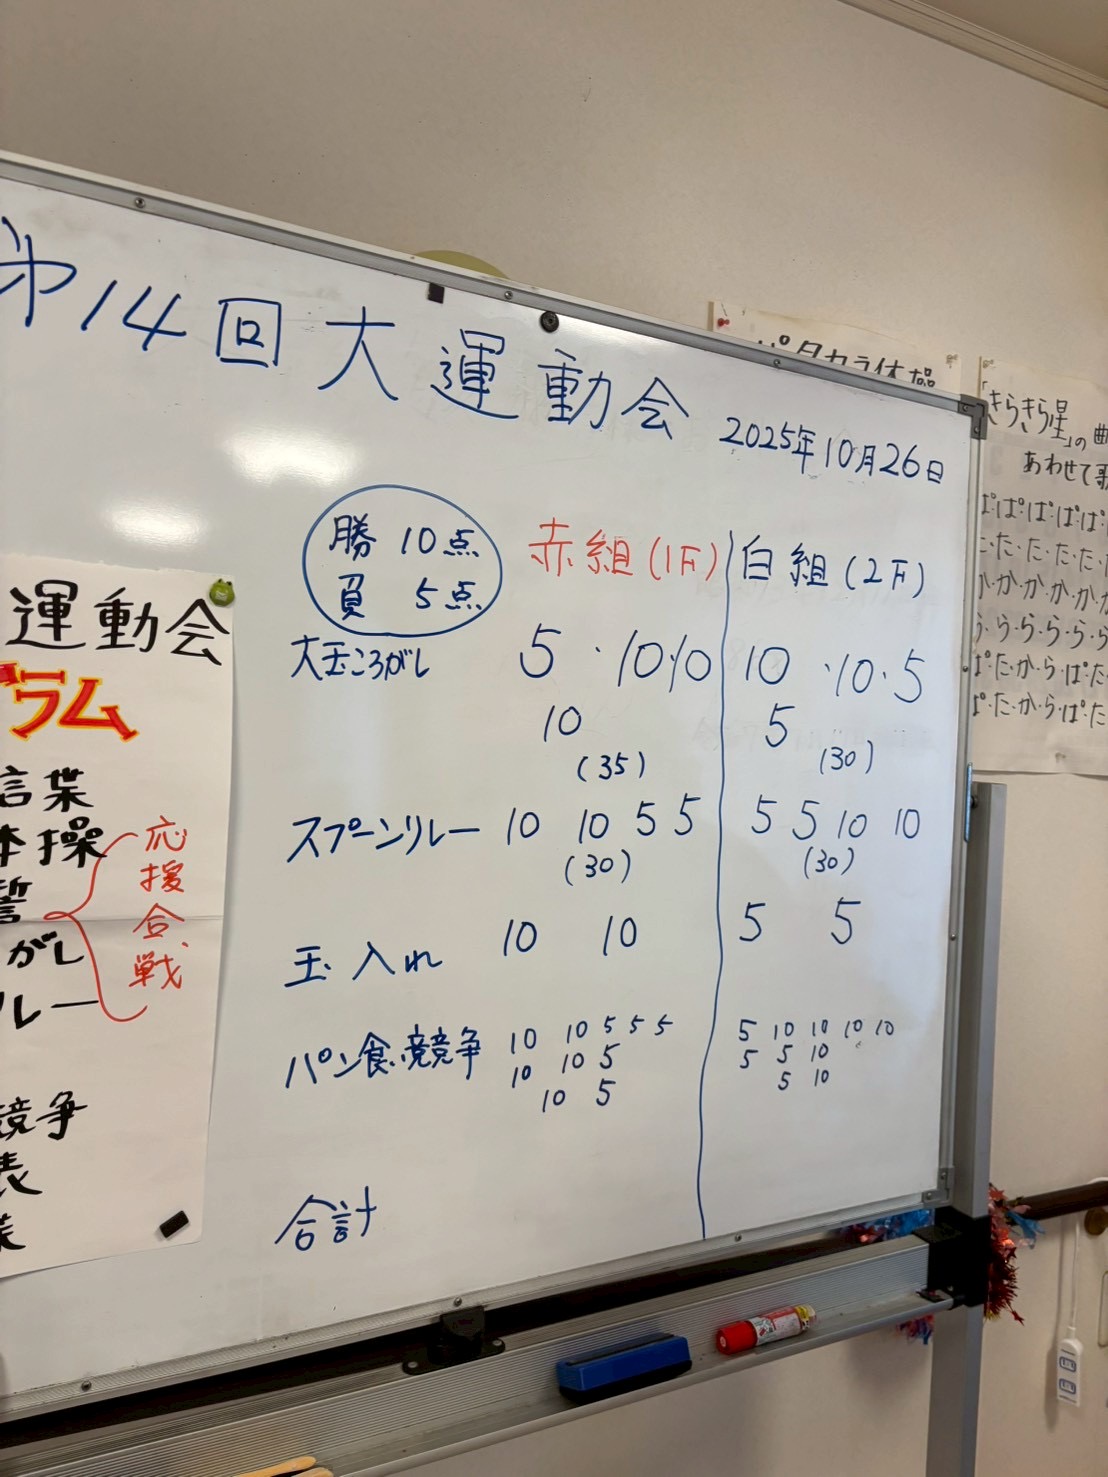 第14回大運動会
2025年10月26日
勝 10点
負 5点
赤組(1F) 白組(2F)
大玉ころがし 5 ・10・10 10 ・10・5
10 5
(35) (30)
スプーンリレー 10 10 5 5 5 5 10 10
(30) (30)
玉入れ 10 10 5 5
パン食競争 10 10 5 5 5 5 10 10 10 10
10 10 5 5 5 10
10 5 5 10
合計
運動会
ラム
言葉
体操
誓
がし
リレー
競争
表
葉
応援合戦
パタカラ体操
「きらきら星」の曲
あわせて歌
ぱ・ぱ・ぱ・ぱ・ぱ
た・た・た・た・た
か・か・か・か・か
ら・ら・ら・ら・ら
ぱ・た・か・ら・ぱ・た
ぱ・た・か・ら・ぱ・た